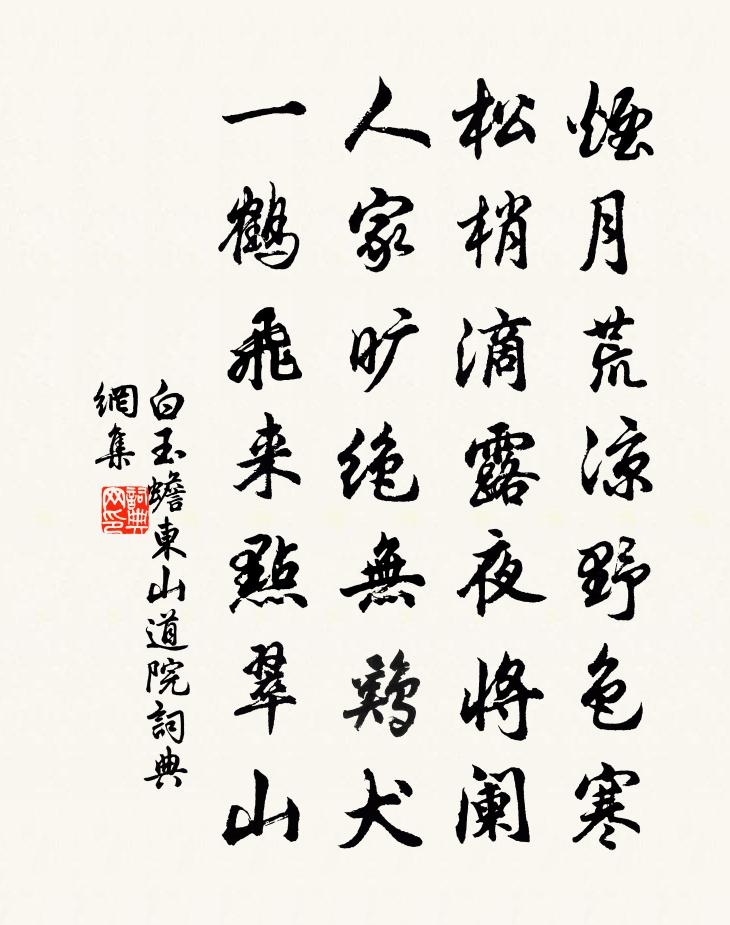 煙月荒涼野色寒
松梢滴露夜将阑
人家旷绝無鷄犬
一鶴飛来點翠山
白玉蟾東山道院詞典
網集
詞典
网印